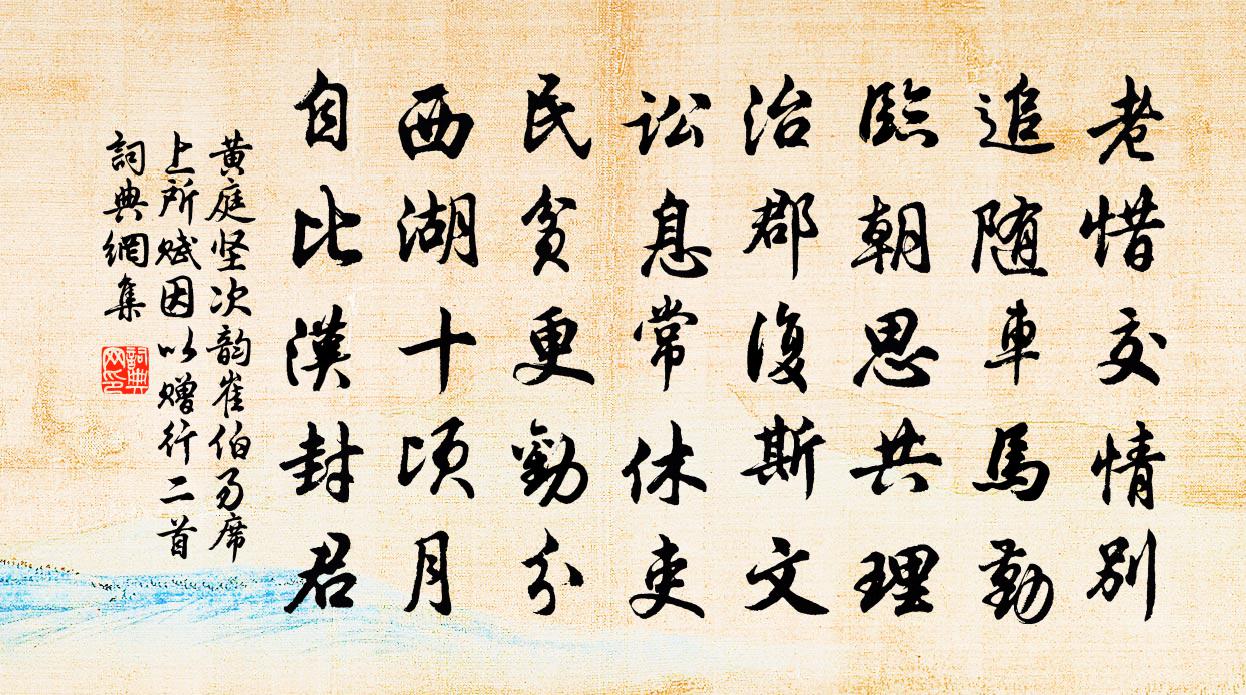 老惜交情别
追随車馬勤
臨朝思共理
治郡復斯文
訟息常休吏
民貧更勸分
西湖十頃月
自比漢封君
黄庭坚次韵崔伯易席
上所赋因以赠行二首
詞典網集
詞典网印